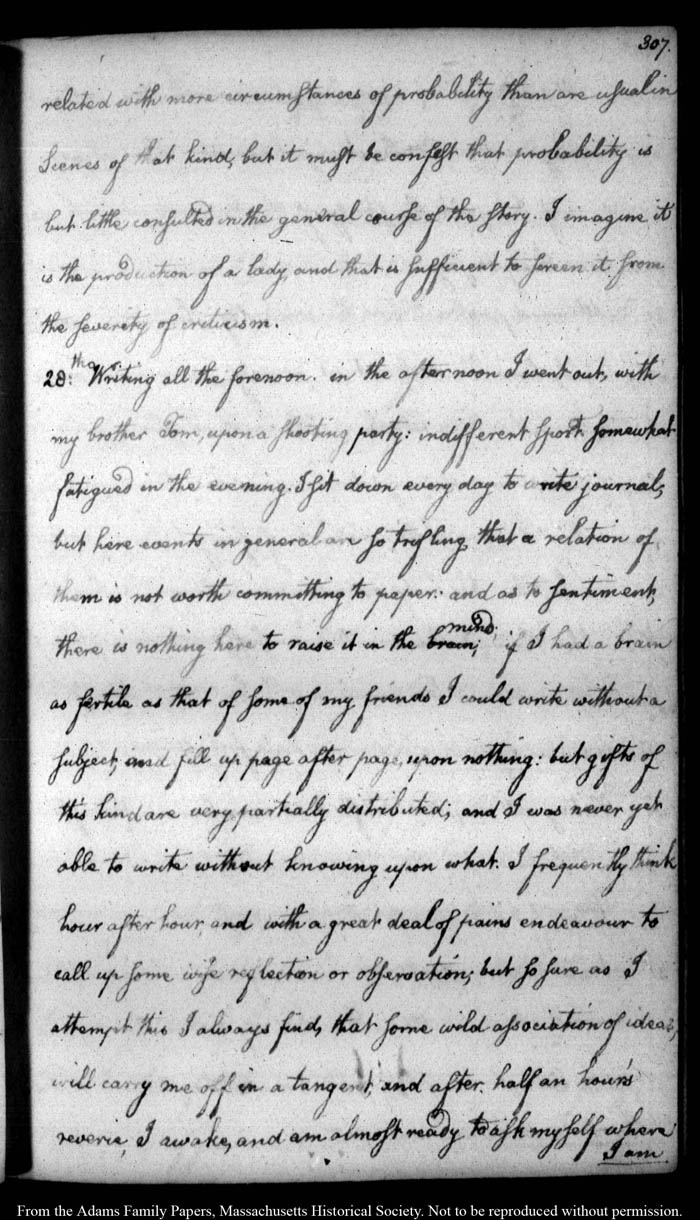 307.
related with more circumstances of probability than are usual in
Scenes of that kind, but it must be confest that probability is
but little consulted in the general course of the story. I imagine it
is the production of a lady, and that is sufficient to screen it from
the severity of criticism.
28:th Writing all the forenoon. in the afternoon I went out, with
my brother Tom, upon a shooting party: indifferent sport. somewhat
fatigued in the evening. I sit down every day to write journal,
but here events in general are so trifling, that a relation of
them is not worth committing to paper: and as to sentiment,
there is nothing here to raise it in the brain; mind; if I had a brain
as fertile as that of some of my friends I could write without a
subject, and fill up page after page, upon nothing: but gifts of
this kind are very partially distributed; and I was never yet
able to write without knowing upon what. I frequently think
hour after hour, and with a great deal of pains endeavour to
call up some wise reflection or observation; but so sure as I
attempt this I always find, that some wild association of ideas,
will carry me off in a tangent, and after half an hour's
reverie, I awake, and am almost ready to ask myself where
I am
From the Adams Family Papers, Massachusetts Historical Society. Not to be reproduced without permission.